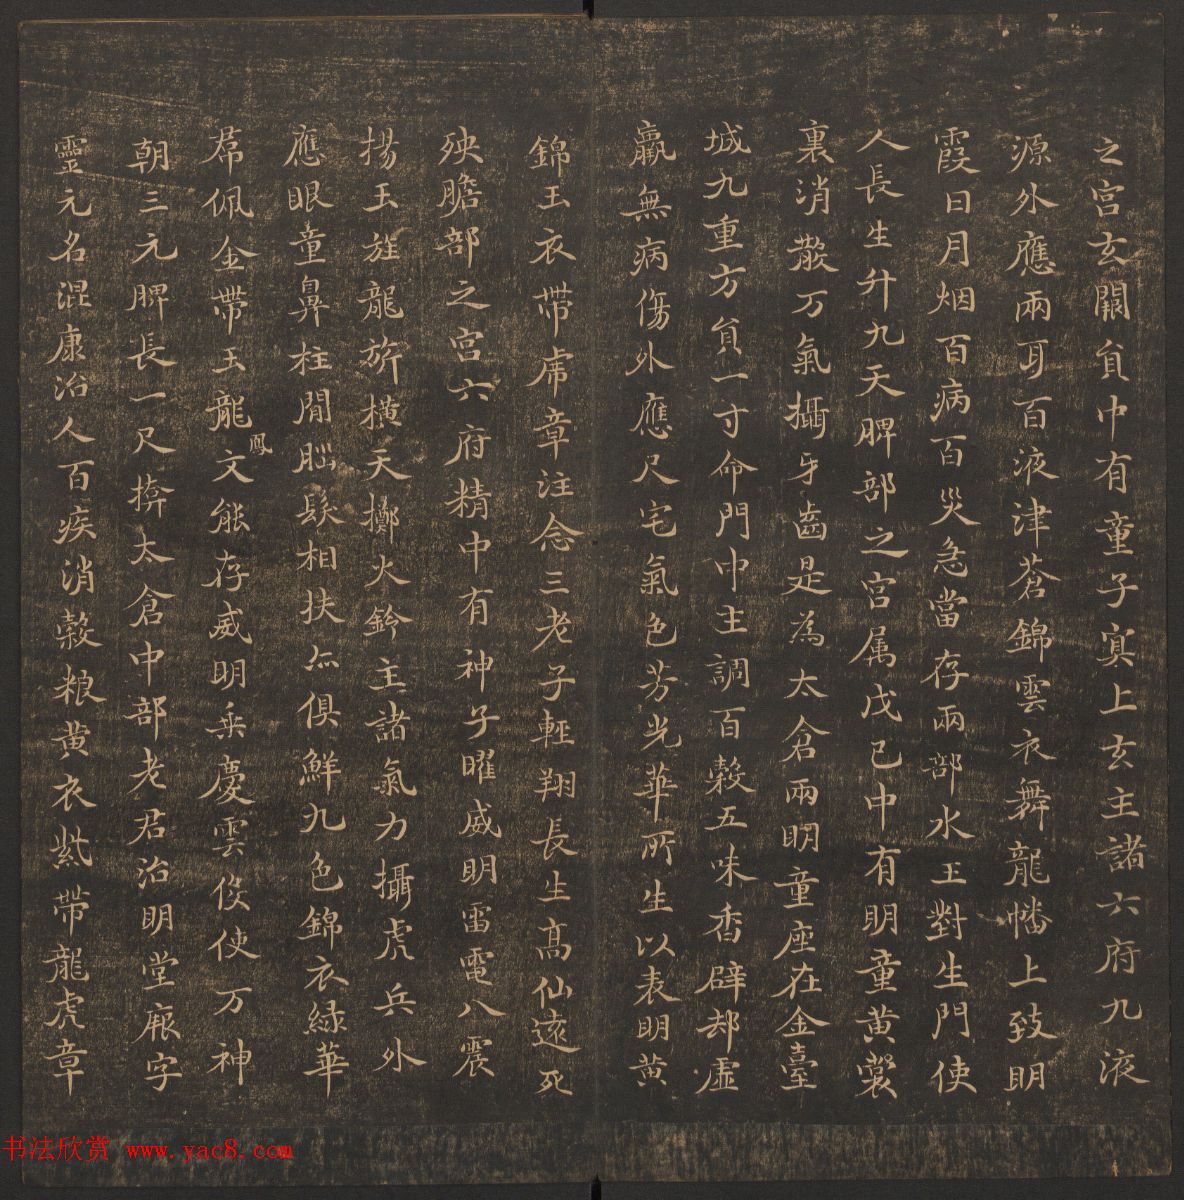 之宫玄闕貟中有童子寘上玄主諸六府九液
源外應兩耳百液津蒼錦雲衣舞龍幡上致明
霞日月烟百病百災急當存兩部水王對生門使
人長生升九天脾部之宫属戊已中有明童黄裳
裏消散万氣攝牙齒是為太倉兩明童座在金臺
城九重方貟一寸命門中主調百穀五味香辟却虚
羸無病傷外應尺宅氣色芳光華所生以表明黄
錦玉衣带虎章注念三老子輕翔長生高仙遠死
殃膽部之宫六府精中有神子曜威明雷電八震
揚玉旌龍旂横天擲火鈴主諸氣力攝虎兵外
應眼童鼻柱間腦髮相扶亦俱鮮九色錦衣緑華
帬佩金带玉龍鳳文能存威明乗慶雲役使万神
朝三元脾長一尺揜太倉中部老君治明堂厭字
靈元名混康治人百疾消穀粮黄衣紫带龍虎章
书法欣赏 www.yac8.com